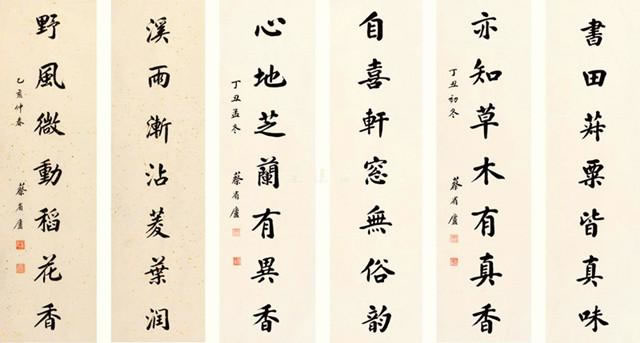 書田菽粟皆真味
亦知草木有真香
丁丑初冬
蔡省廬
自喜軒窓無俗韵
心地芝蘭有異香
丁丑孟冬
蔡省廬
溪雨漸沾菱葉潤
野風微動稻花香
乙亥仲春
蔡省廬